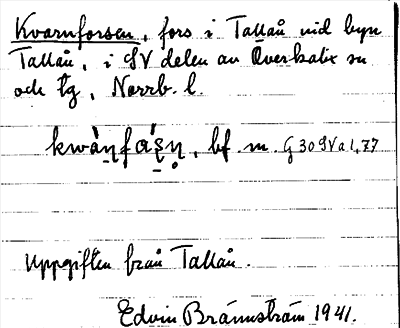 Kvarnforsen, fors i Tallån vid byn
Tallån, i SV delen av Överkalix sn
och tg, Norrb. l.
kwàṇfáṣṇ̥, bf. m. G 30 SV a 1,77
Uppgiften från Tallån.
Edvin Brännström 1941.